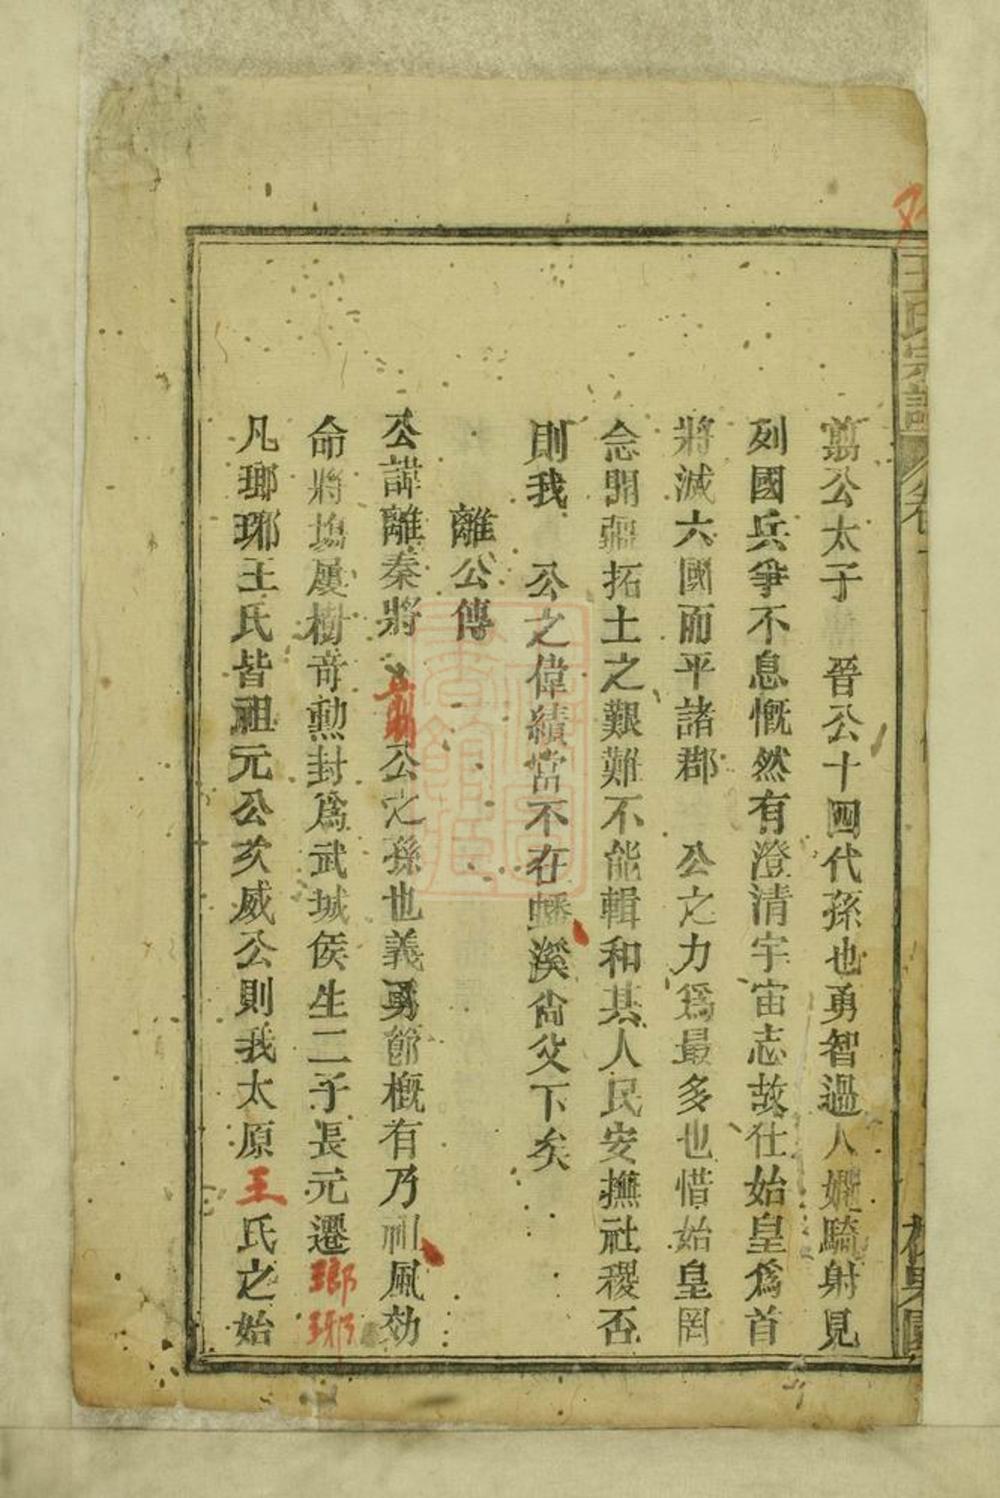 王氏宗譜
翦公太子　晉公十四代孫也勇智過人嫻騎射見
列國兵爭不息慨然有澄清宇宙志故仕始皇爲首
將滅六國而平諸郡　公之力爲最多也惜始皇罔
念開疆拓土之艱難不能輯和其人民安撫社稷否
則我　公之偉績當不在蟠溪尙父下矣
離公傳
公諱離秦將翦公之孫也義勇節槪有乃祖風効
命將塲屢樹奇勲封爲武城侯生二子長元遷瑯琊
凡瑯琊王氏皆祖元公次威公則我太原王氏之始